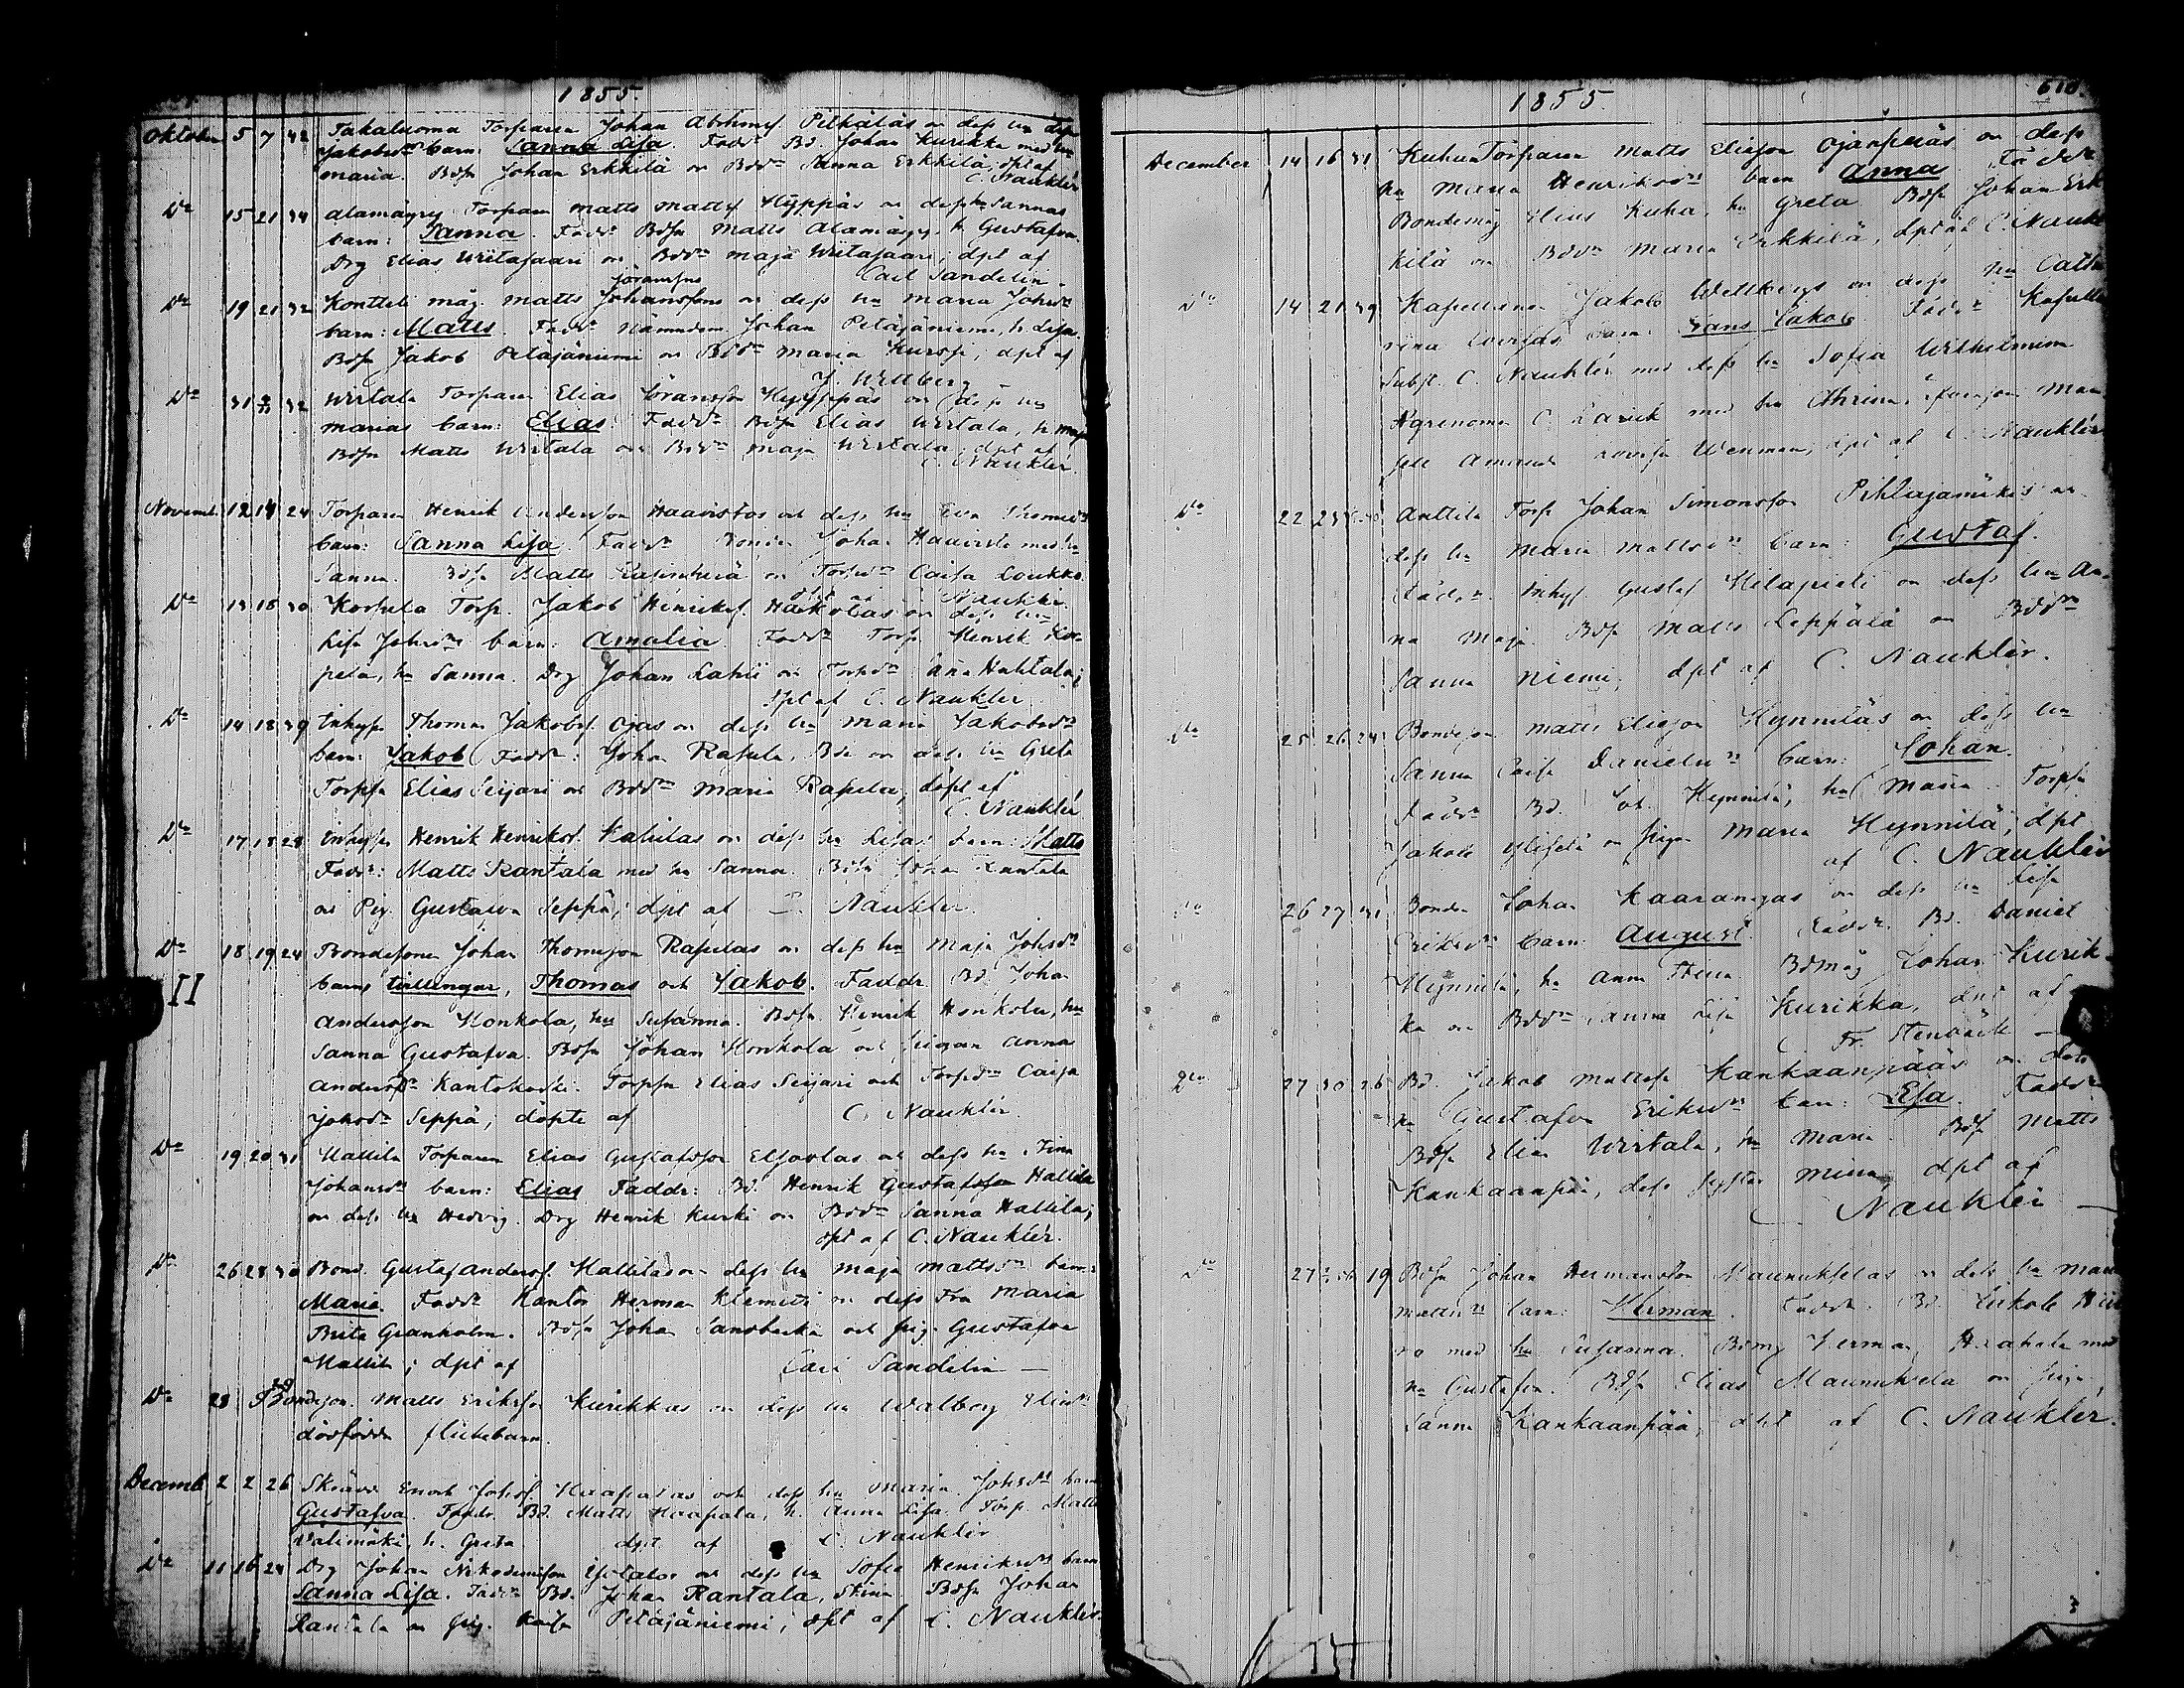 1855.
Oktober 5 7 42 Takaluoma Torparen Johan Abrhmsf. Pitkäläs o dess hu
Jakobsdrs barn: Sanna Lisa. Faddr Bd. Johan Kurikka med hu
Maria. Bdsn Johan Erkkilä o Bddr Sanna Erkkilä, dpt af
C. Nauklér
Do 15 21 34 Alamäyry Torparen Matts Mattsf Hyppäs o dess hu Sannas
barn: Sanna. Faddr Bdsn Matts Alamäyry, h. Gustafva.
Drg Elias Wiitasaari o Bddr Maja Wiitasaari; dpt af
Carl Sandelin.
Göransons
Do 19 21 32 Konttili måg Matts Johanssons o dess hu Maria Johsdr
barn: Matts. Faddr Nämndem. Johan Petäjäniemi, h. Lisa.
Bdsn Jakob Petäjäniemi o Bddr Maria Kurssi, dpt af
J. Wettberg
Do 31 32 Wirtala Torparen Elias Göransson Hyppäs o dess hu
Marias barn: Elias. Faddr Bdsn Elias Wirtala, h. Maja
Bdsn Matts Wirtala o Bddr Maja Wirtala, dpt af
C. Nauklér.
Novemb. 12 14 24 Torparen Henrik Andersson Haavistos och dess hu Eva Thomasdr
barn: Sanna Lisa. Faddr Bonden Johan Haavisto med hu
Sanna. Bdsn Matts o Torpdr Caisa Loukko.
dpt af Nauklér.
Do 13 18 30 Korpela Torp. Jakob Henriksf. Hakolas o dess hu
Lisa Johsdrs barn: Amalia. Faddr Torp Henrik Kor-
pela, hu Sanna. Drg Johan Lahti o Torpdr Anna Huhtala;
dpt af C. Nauklér
Do 14 18 39 Inhyss Thomas Jakobsf. Ojas o dess hu Maria Jakobsdr
barn: Jakob. Faddr: Johan Rapila, Bde o dess hu Greta
Torpsn Elias Seijari o Bddr Maria Rapila, döpt af
C. Nauklér
Do 17 18 28 Inhyss Henrik Henriksf. Kalulas o dess hu Lisas barn: Matts
Faddr: Matts Rantala med hu Sanna. Bdsn Johan Rantala
o Pig. Gustava Seppä; dpt af C. Nauklér.
Do 18 19 24 Bondesonen Johan Thomsson Rapilas o dess hu Maja Johsdr
II barn tvillingar, Thomas och Jakob. Faddr. Bd. Johan
Andersson Honkola, hu Susanna. Bdsn Henrik Honkola, hu
Sanna Gustafva. Bdsn Johan Honkola och pigan Anna
Andersdr Kantokoski. Torpsn Elias Seijari och Torpdr Caisa
Johsdr Seppä; döpte af C. Nauklér.
Do 19 20 31 Hallila Torparen Elias Gustafsson Elsovlas o dess hu Stina
Johansdr barn: Elias Faddr: Bd. Henrik Gustafsson Hallila
o dess hu Hedvig. Drg Henrik Kurki o Bddr Sanna Hallila;
dpt af C. Nauklér.
Do 26 28 30 Bond. Gustaf Andersf. Hallilas o dess hu Maja Mattsdr barn:
Maria. Faddr Kantor Herman Klemets o dess Fru Maria
Brita Granholm. Bdsn Johan Sandbacka och pig. Gustafva
Hallila; dpt af Carl Sandelin
Do 23 Bondeson Matts Eriksson Kurikkas o dess hu Walborg Eliædr
dödfödda flickebarn.
Decemb. 2 2 26 Skrädd Enok Johsf. Haapalas och dess hu Maria Johsdr barn
Gustafva. Faddr. Bd. Matts Haapala, h. Anna Lisa. Torp. Matts
Välimäki, h. Greta. dpt af C. Nauklér
Do 11 16 24 Drg Johan Nikodemisson Ylitalos o dess hu Sofia Henriksdr barn
Sanna Lisa. Faddr Bd. Johan Rantala, Stina. Bdsn Johan
Rantala o pig. Kaisa Petäjäniemi; dpt af C. Nauklér.
1855.
610.
December 14 16 31 Kuhna Torparen Matts Eliasson Ojanpääs o dess
hu Maria Henriksdrs barn Anna. Faddr
Bondemåg Elias Kuha, hu Greta. Bdsn Johan Erk-
kilä o Bddr Maria Erkkilä, dpt af C. Nauklér
Do 14 21 39 Kapellanen Jakob Wettbergs o dess hu Catha-
rina barn: Frans Jakob. Faddr Kapells
Subst. C. Nauklér med dess hu Sofia Wilhelmina
Agronomen C. med hu Mam-
sell Amanda Lovisa Wenman, dpt af C. Nauklér
Do 22 23 Anttila Torp Johan Simonsson Pihlajamäkis o
dess hu Maria Mattsdrs barn: Gustaf.
Faddr. Inhys. Gustaf Hilapieli o dess hu An-
na Maja. Bdsn Matts Leppälä o Bddr
Sanna Niemi, dpt af C. Nauklér.
Do 25 26 24 Bondeson Matts Eliasson Hynniläs o dess hu
Sanna Caisa Danielsdrs barn: Johan.
Faddr Bd. Joh. Hynnilä, hu Maria. Torpsn
Jakob o pigan Maria Hynnilä; dpt
af C. Nauklér
Do 26 27 31 Bonden Johan Kaarangas o dess hu Lisa
Eriksdrs barn: August. Faddr. Bd. Daniel
Hynnilä, hu Anna Stina. Bdmåg Johan Kurik-
ka o Bddr Sanna Lisa Kurikka, dpt af
Fr. Stenbäck
Do 27 30 26 Bd. Jakob Mattss. Kankaanpääs o dess
hu Gustafva Eriksdrs barn: Lisa. Faddr
Bdsn Elias Wirtala, hu Maria. Bdsn Matts
Kankaanpää, dess syster Mina, dpt af
C. Nauklér
Do 27 19 Bdsn Johan Hermansson Maunukselas o dess hu Maria
Mattsdrs barn: Herman. Faddr. Bd. Jakob
med hu Susanna. Bdmg Herman Haapala med
hu Gustafva. Bdsn Elias Maunuksela o pigan
Sanna Kankaanpää, dpt af C. Nauklér.